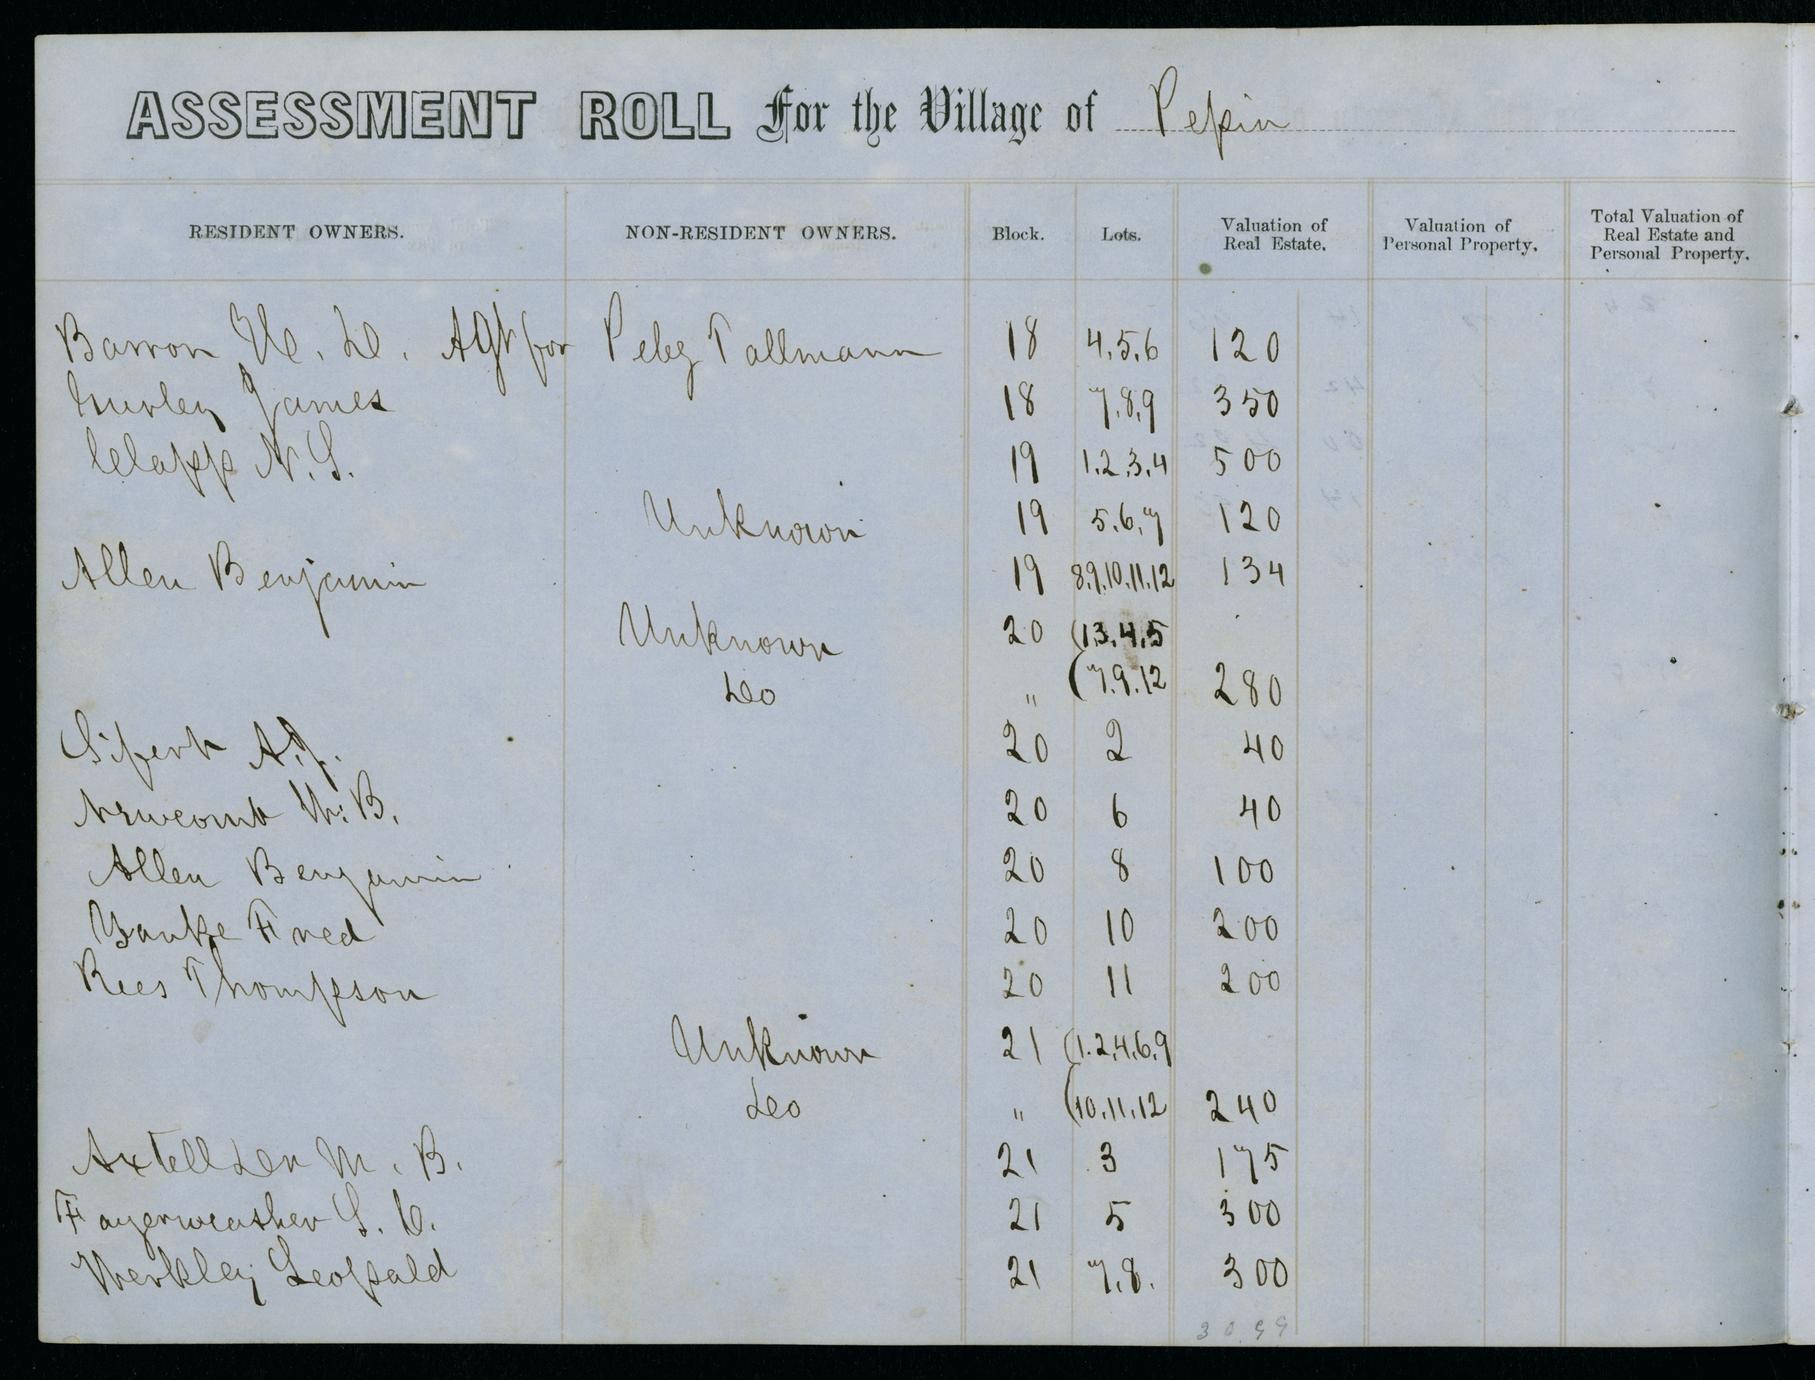 ASSESSMENT ROLL For the Village of Pepin
RESIDENT OWNERS. NON-RESIDENT OWNERS. Block. Lots. Valuation of Real Estate. Valuation of Personal Property. Total Valuation of Real Estate and Personal Property.
Barron H. D. Agt for Peleg Tallmann 18 4,5,6 120
Hurley James 18 7,8,9 350
Clapp N. S. 19 1,2,3,4 500
Unknown 19 5,6,7 120
Allen Benjamin 19 8,9,10,11,12 134
Unknown 20 (1,3,4,5
Do " (7,9,12 280
Sifert A. J. 20 2 40
Newcomb W. B. 20 6 40
Allen Benjamin 20 8 100
Yanke Fred 20 10 200
Rees Thompson 20 11 200
Unknown 21 (1,2,4,6,9
Do " (10,11,12 240
Axtell Den M. B. 21 3 175
Fayerweather S. C. 21 5 300
Werkley Leopald 21 7,8. 300
3099